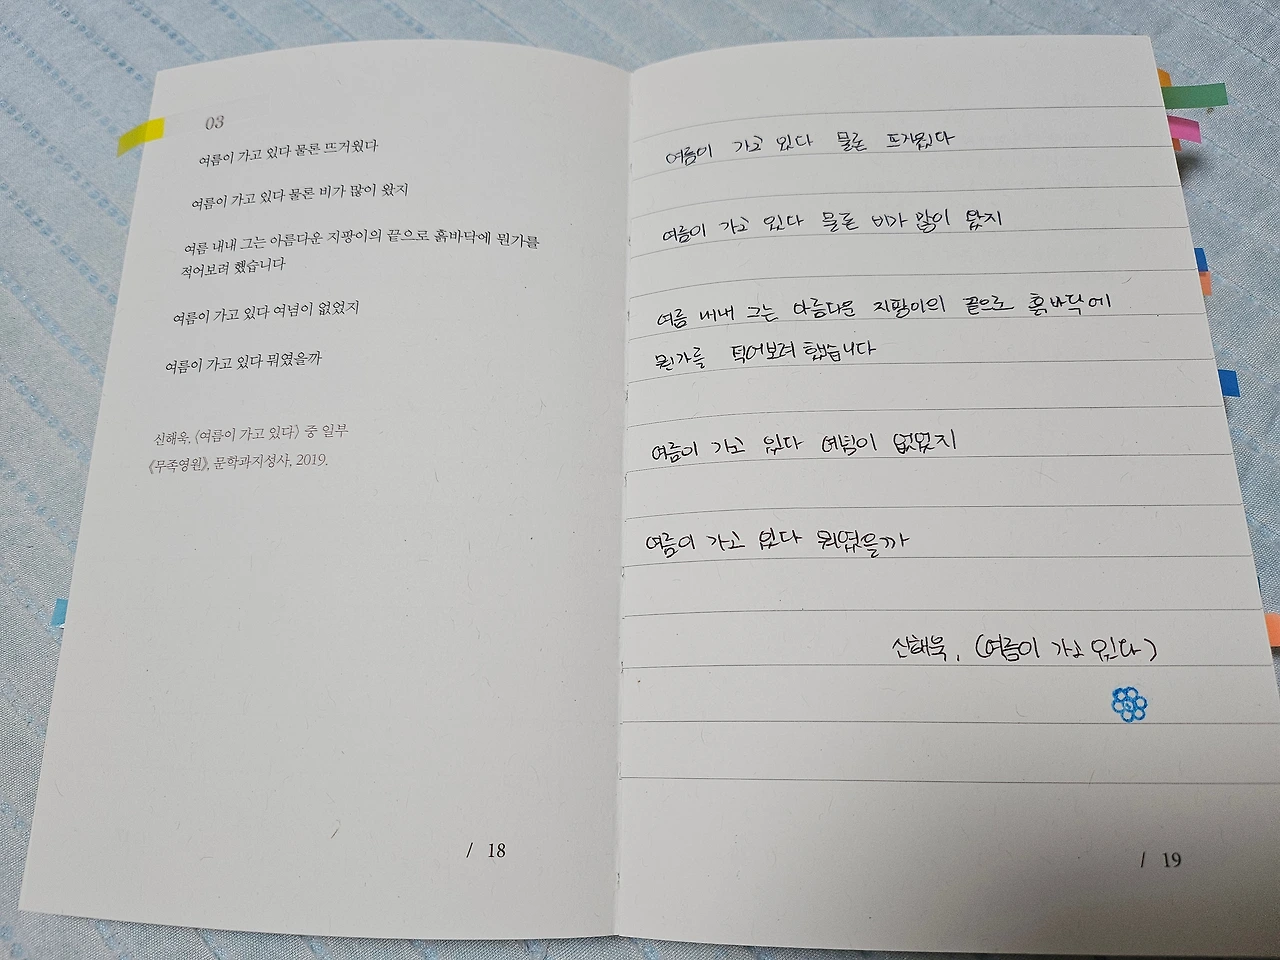 03
여름이 가고 있다 물론 뜨거웠다
여름이 가고 있다 물론 비가 많이 왔지
여름 내내 그는 아름다운 지팡이의 끝으로 흙바닥에 뭔가를
적어보려 했습니다
여름이 가고 있다 여념이 없었지
여름이 가고 있다 뭐였을까
신해욱, 〈여름이 가고 있다〉 중 일부
《무족영원》, 문학과지성사, 2019.
/ 18
여름이 가고 있다 물론 뜨거웠다
여름이 가고 있다 물론 비가 많이 왔지
여름 내내 그는 아름다운 지팡이의 끝으로 흙바닥에
뭔가를 적어보려 했습니다
여름이 가고 있다 여념이 없었지
여름이 가고 있다 뭐였을까
신해욱, (여름이 가고 있다)
/ 19